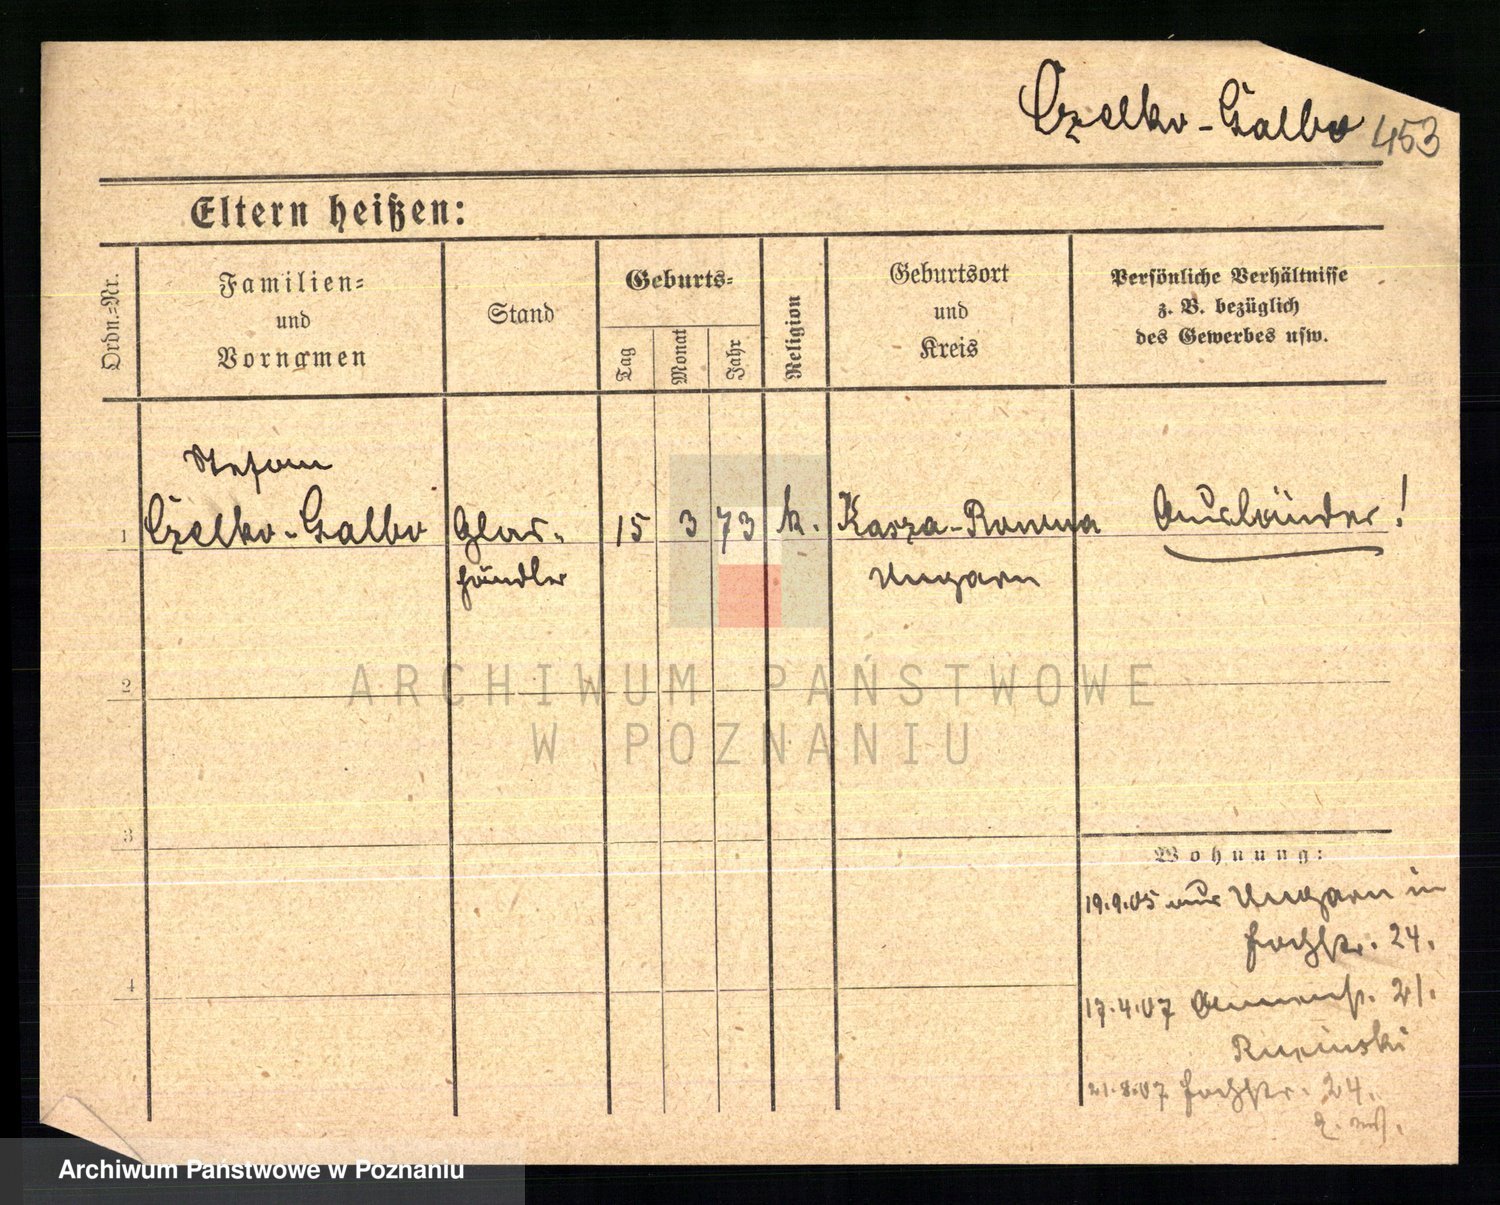 Czelko-Galbo 453
Eltern heißen:
Ordn.-Nr.
Familien-
und
Vornamen
Stand
Geburts-
Tag
Monat
Jahr
Religion
Geburtsort
und
Kreis
Persönliche Verhältnisse
z. B. bezüglich
des Gewerbes usw.
Stefan
1 Czelko-Galbo Glas- 15 3 73 k. Kasza-Rowna Ausländer!
händler Ungarn
2
ARCHIWUM PAŃSTWOWE
W POZNANIU
3
Wohnung:
19.9.05 aus Ungarn in
24.
4
17.4.07 21.
Rucinski
21.8.07 24.
Archiwum Państwowe w Poznaniu